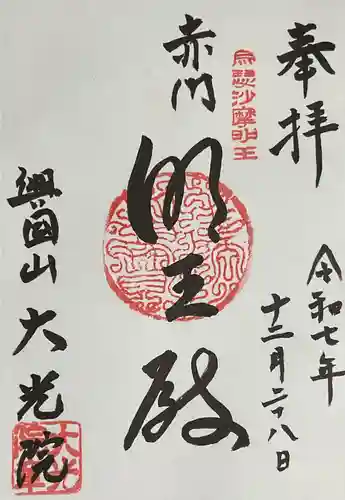 奉拝
令和七年
十二月二十八日
烏瑟沙摩明王
赤門
明王殿
興国山 大光院